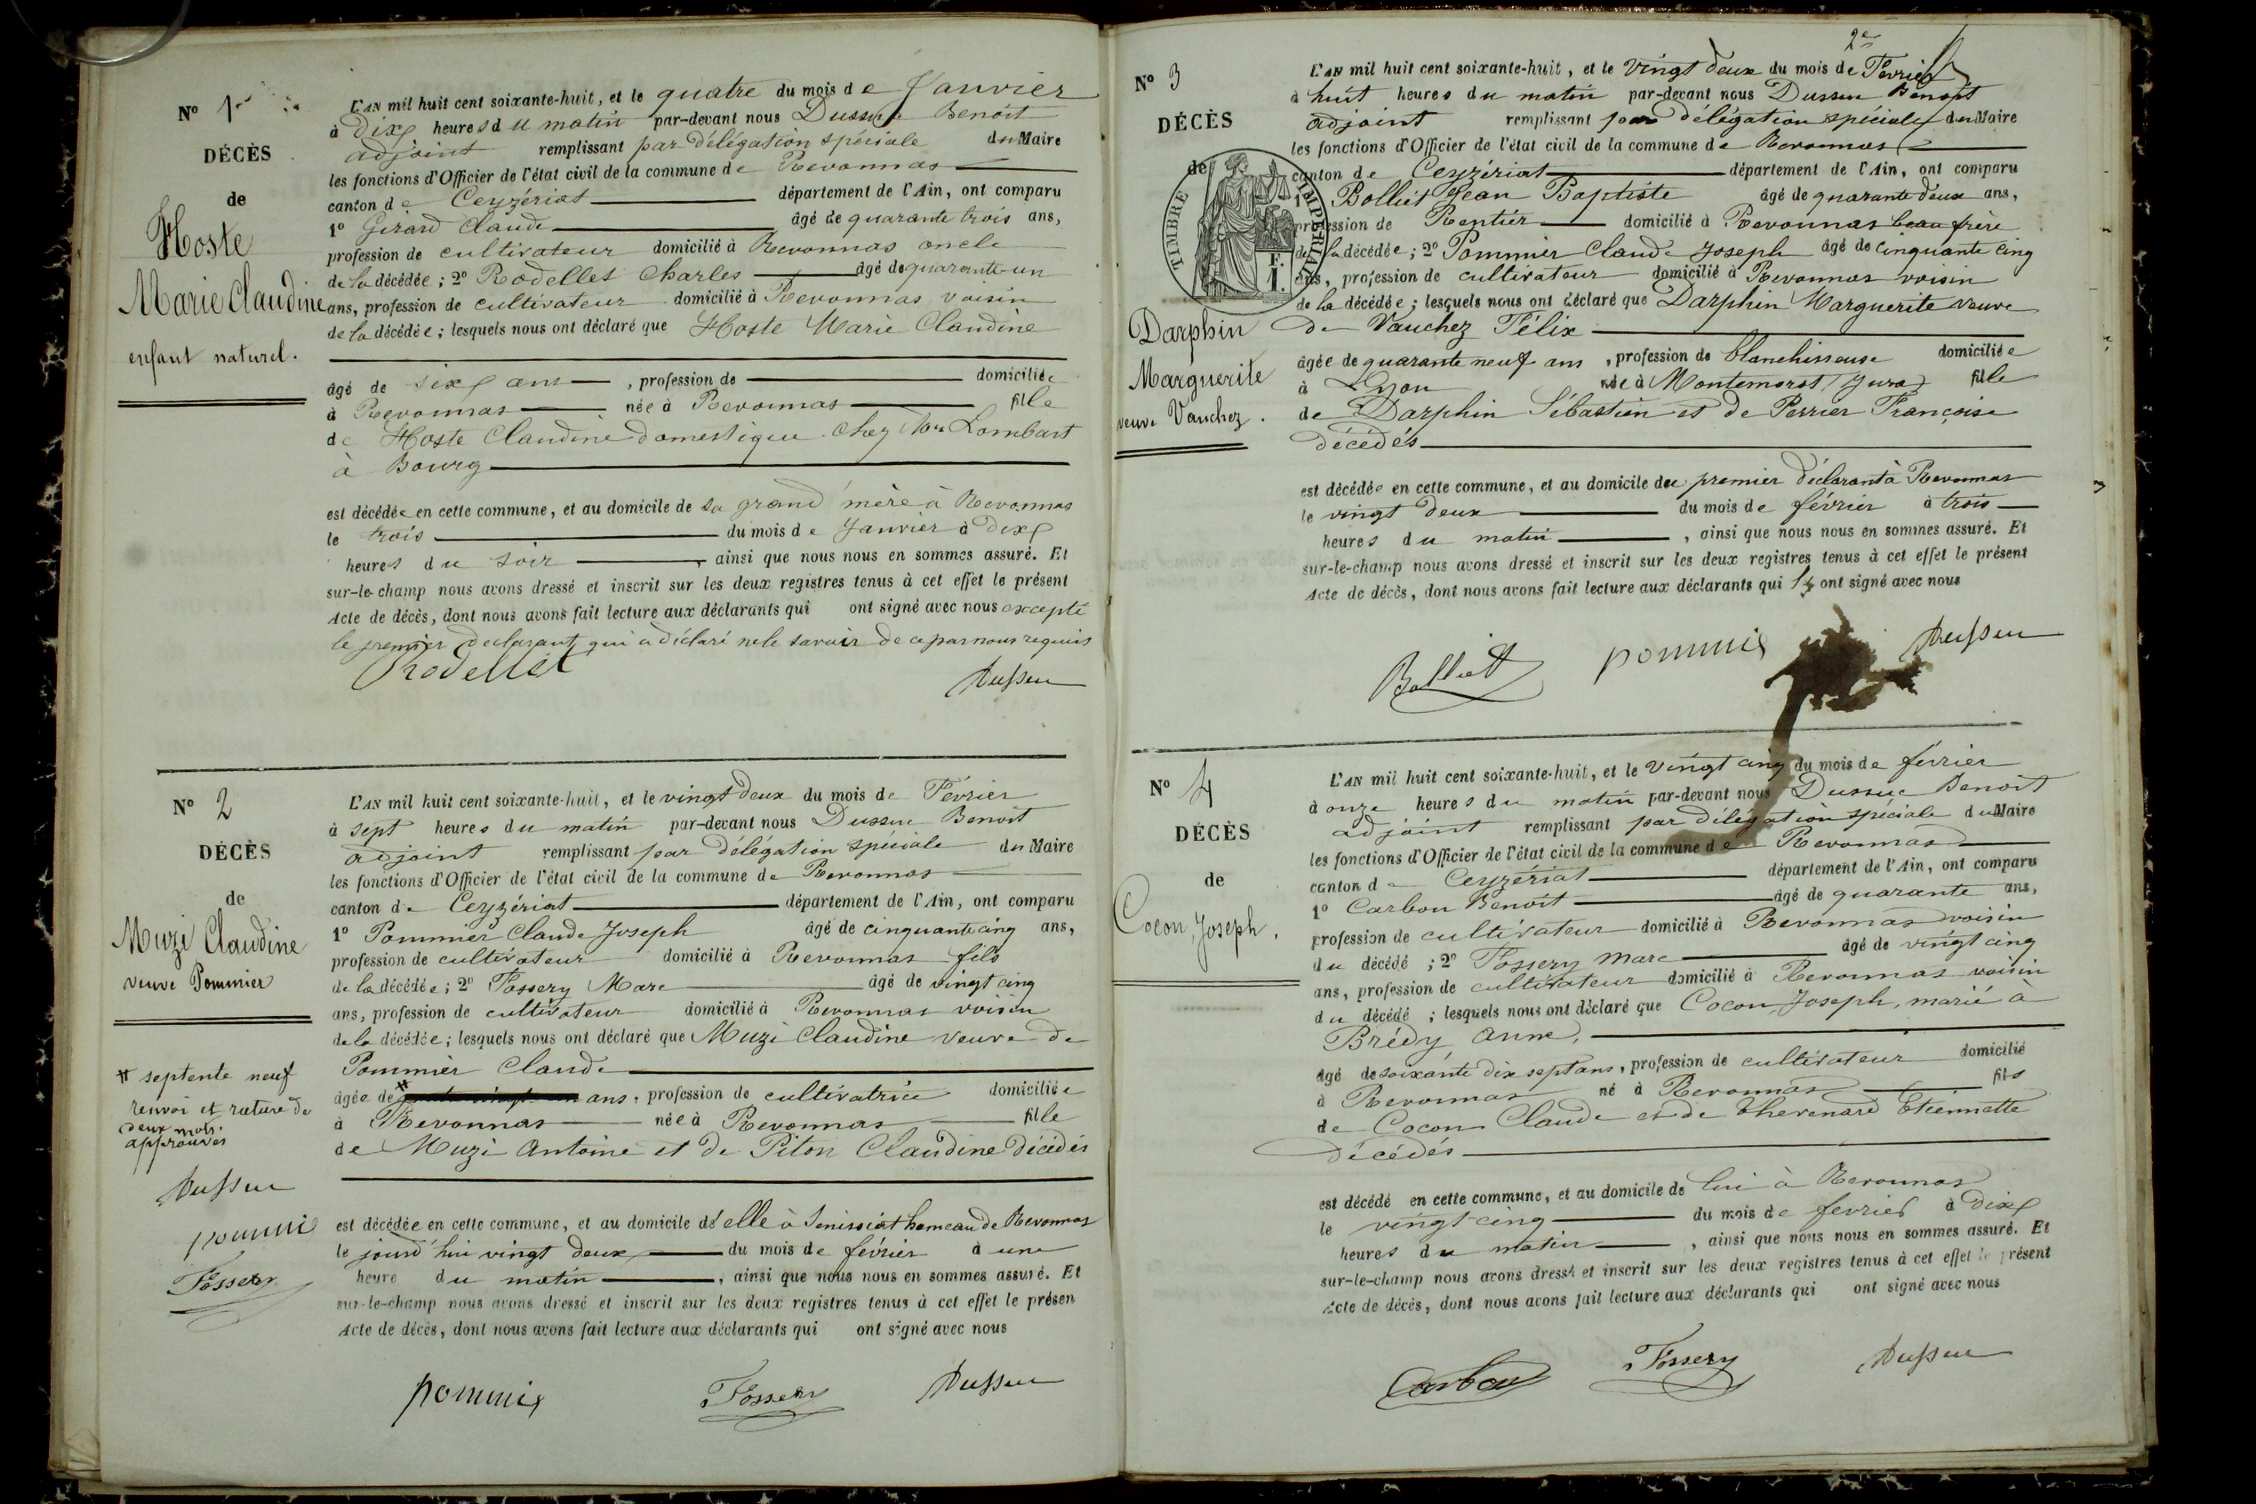 N° 1er
DÉCÈS
de
Hoste
Marie Claudine
enfant naturel.
L'AN mil huit cent soixante-huit, et le quatre du mois de Janvier
à dix heures du matin par-devant nous Dussuc Benoit
adjoint remplissant par délégation spéciale du Maire
les fonctions d'Officier de l'état civil de la commune de Revonnas
canton de Ceyzériat département de l'Ain, ont comparu
1° Girard Claude âgé de quarante trois ans,
profession de cultivateur domicilié à Revonnas oncle
de la décédée ; 2° Rodellet Charles âgé de quarante un
ans, profession de cultivateur domicilié à Revonnas voisin
de la décédée ; lesquels nous ont déclaré que Hoste Marie Claudine
âgé de six ans , profession de domiciliée
à Revonnas née à Revonnas fille
de Hoste Claudine domestique chez Mr Lombart
à Bourg
est décédée en cette commune, et au domicile de sa grand'mère à Revonnas
le trois du mois de Janvier à dix
heures du soir , ainsi que nous nous en sommes assuré. Et
sur-le-champ nous avons dressé et inscrit sur les deux registres tenus à cet effet le présent
Acte de décès, dont nous avons fait lecture aux déclarants qui ont signé avec nous excepté
le premier déclarant qui a déclaré ne le savoir de ce par nous requis
Rodellet
Dussuc
N° 2
DÉCÈS
de
Muzi Claudine
veuve Pommier
# septente neuf
renvoi et rature de
deux mots
approuvés
Dussuc
pommie
Fossery
L'AN mil huit cent soixante-huit, et le vingt deux du mois de Février
à sept heures du matin par-devant nous Dussuc Benoit
adjoint remplissant par délégation spéciale du Maire
les fonctions d'Officier de l'état civil de la commune de Revonnas
canton de Ceyzériat département de l'Ain, ont comparu
1° Pommier Claude Joseph âgé de cinquante cinq ans,
profession de cultivateur domicilié à Revonnas fils
de la décédée ; 2° Fossery Marc âgé de vingt cinq
ans, profession de cultivateur domicilié à Revonnas voisin
de la décédée ; lesquels nous ont déclaré que Muzi Claudine veuve de
Pommier Claude
âgée de # ans, profession de cultivatrice domiciliée
à Revonnas née à Revonnas fille
de Muzi Antoine et de Piton Claudine décédés
est décédée en cette commune, et au domicile d'elle à Senissiat hameau de Revonnas
le jourd'hui vingt deux du mois de février à une
heure du matin , ainsi que nous nous en sommes assuré. Et
sur-le-champ nous avons dressé et inscrit sur les deux registres tenus à cet effet le présen
Acte de décès, dont nous avons fait lecture aux déclarants qui ont signé avec nous
pommie
Fossery
Dussuc
2e
N° 3
DÉCÈS
de
TIMBRE IMPERIAL
1 F.
Darphin
Marguerite
veuve Vauchez.
L'AN mil huit cent soixante-huit, et le vingt deux du mois de Février
à huit heures du matin par-devant nous Dussuc Benoit
adjoint remplissant par délégation spéciale du Maire
les fonctions d'Officier de l'état civil de la commune de Revonnas
canton de Ceyzériat département de l'Ain, ont comparu
1° Bolliet Jean Baptiste âgé de quarante deux ans,
profession de Rentier domicilié à Revonnas beau frère
de la décédée ; 2° Pommier Claude Joseph âgé de cinquante cinq
ans, profession de cultivateur domicilié à Revonnas voisin
de la décédée ; lesquels nous ont déclaré que Darphin Marguerite veuve
de Vauchez Félix
âgée de quarante neuf ans , profession de blanchisseuse domiciliée
à Lyon née à Montemorot (Jura) fille
de Darphin Sébastien et de Perrier Françoise
décédés
est décédée en cette commune, et au domicile du premier déclarant à Revonnas
le vingt deux du mois de février à trois
heures du matin , ainsi que nous nous en sommes assuré. Et
sur-le-champ nous avons dressé et inscrit sur les deux registres tenus à cet effet le présent
Acte de décès, dont nous avons fait lecture aux déclarants qui ont signé avec nous
Bolliet
pommie
Dussuc
N° 4
DÉCÈS
de
Cocon, Joseph.
L'AN mil huit cent soixante-huit, et le vingt cinq du mois de février
à onze heures du matin par-devant nous Dussuc Benoit
adjoint remplissant par délégation spéciale du Maire
les fonctions d'Officier de l'état civil de la commune de Revonnas
canton de Ceyzériat département de l'Ain, ont comparu
1° Carbon Benoit âgé de quarante ans,
profession de cultivateur domicilié à Revonnas voisin
du décédé ; 2° Fossery Marc âgé de vingt cinq
ans, profession de cultivateur domicilié à Revonnas voisin
du décédé ; lesquels nous ont déclaré que Cocon, Joseph, marié à
Brédy Anne,
âgé de soixante dix sept ans, profession de cultivateur domicilié
à Revonnas né à Revonnas fils
de Cocon Claude et de Thevenard Etiennette
décédés
est décédé en cette commune, et au domicile de lui à Revonnas
le vingt-cinq du mois de février à dix
heures du matin , ainsi que nous nous en sommes assuré. Et
sur-le-champ nous avons dressé et inscrit sur les deux registres tenus à cet effet le présent
Acte de décès, dont nous avons fait lecture aux déclarants qui ont signé avec nous
Carbon
Fossery
Dussuc